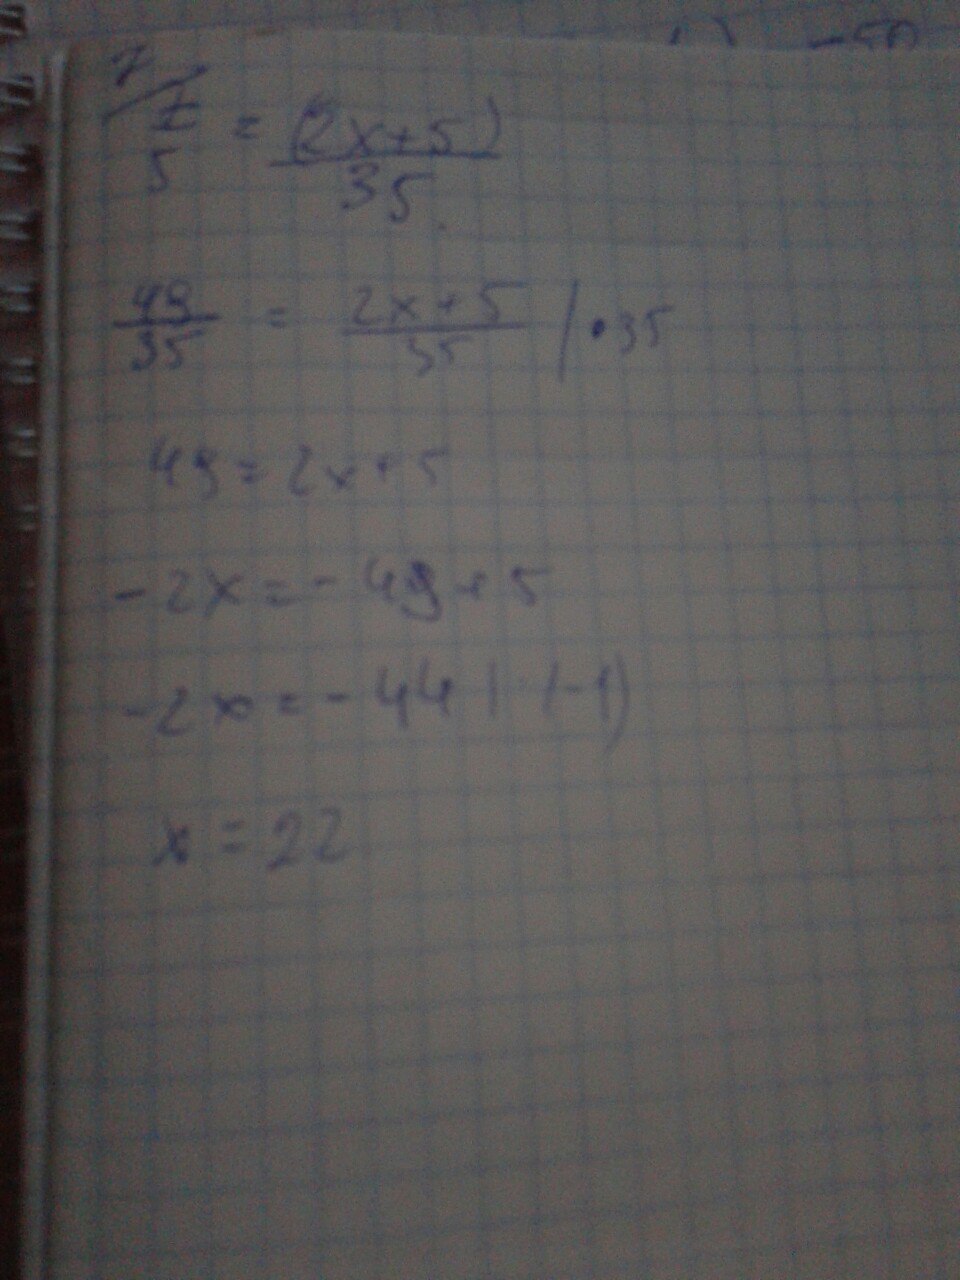 7/ 7/5 = (2x+5)/35
49/35 = 2x+5/35 / •35
49 = 2x+5
-2x = -49+5
-2x = -44 | · (-1)
x = 22